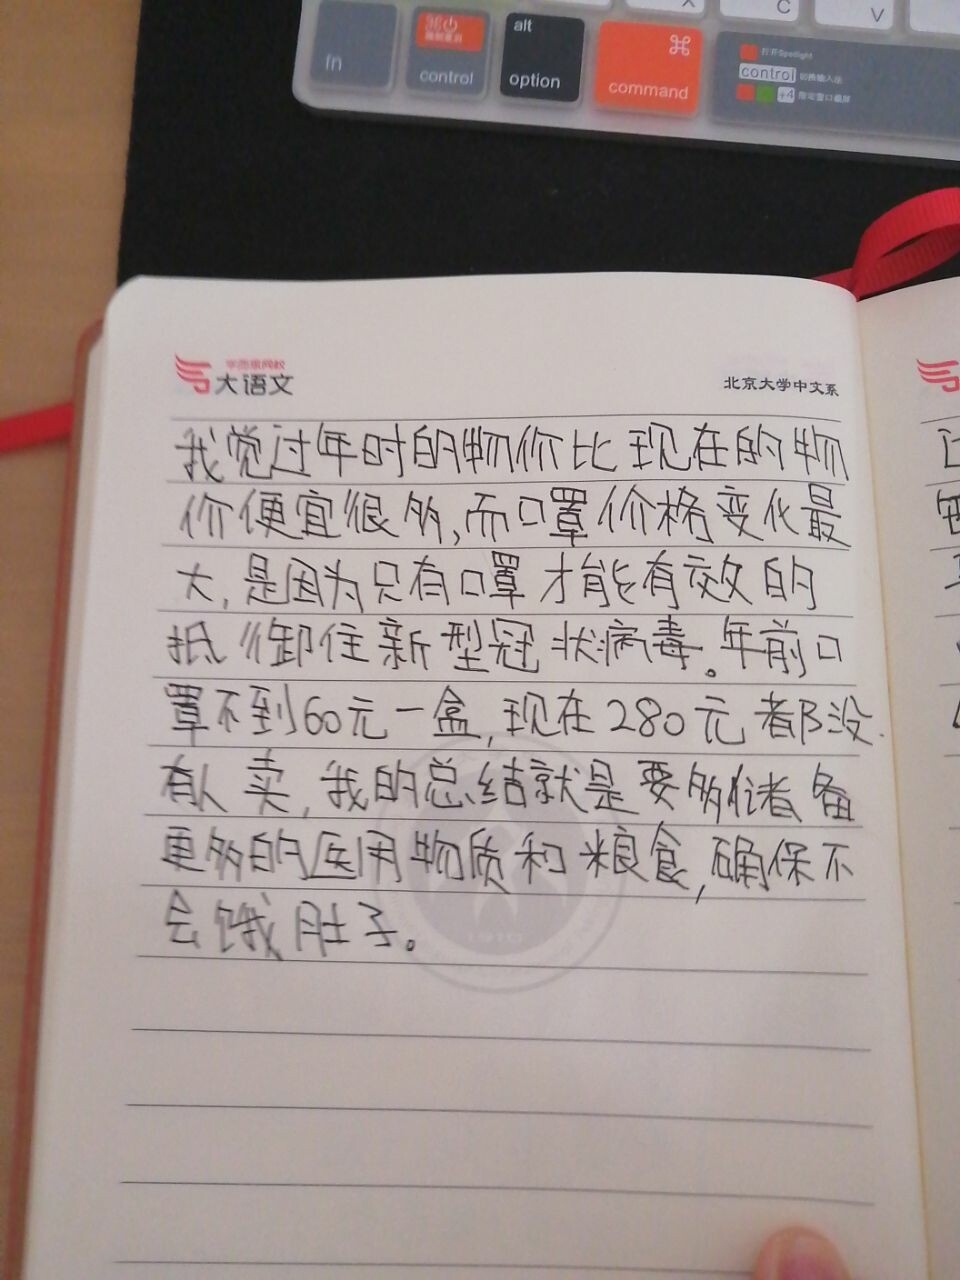 fn
control
alt
option
⌘
command
X
C
V
打开Spotlight
control 切换输入法
+4 指定窗口截屏
学而思网校
大语文
北京大学中文系
我觉过年时的物价比现在的物
价便宜很多,而口罩价格变化最
大,是因为只有口罩才能有效的
抵御住新型冠状病毒。年前口
罩不到60元一盒,现在280元都没
有人卖,我的总结就是要多储备
更多的医用物质和粮食,确保不
会饿肚子。
1910